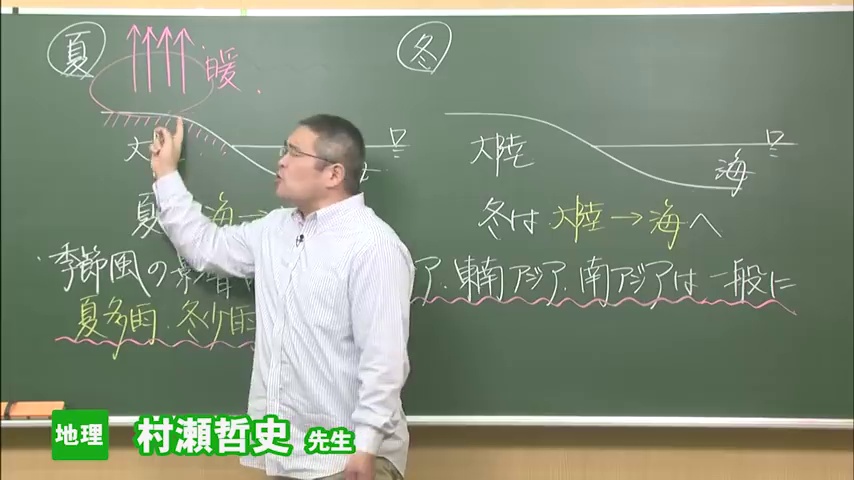 夏
冬
暖
大陸
海
夏 海→
冬は 大陸→海へ
季節風の影響
ア、東南アジア、南アジアは一般に
夏多雨、冬少雨
地理 村瀬哲史 先生